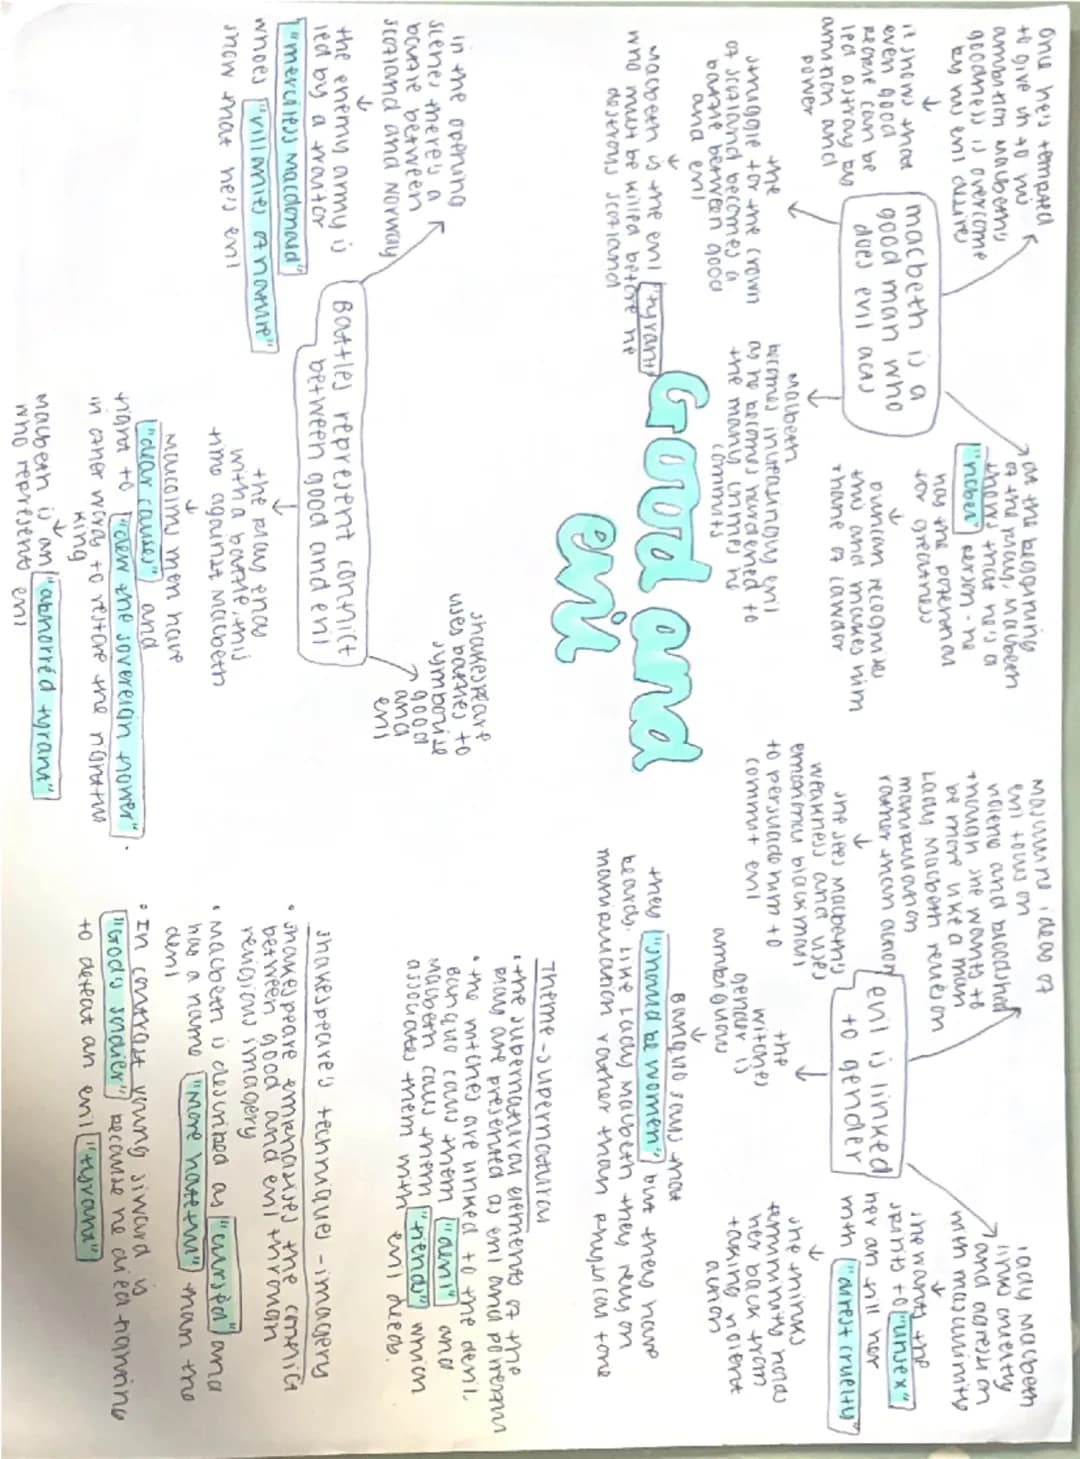 Good and
evil
macbeth is a
good man who
does evil acts
one he's tempted
to give in to his
ambition macbeth's
goodness is overcome
by his evil desires
it shows that
even good
people can be
led astray by
ambition and
power
at the beginning
of the play, macbeth
shows that he's a
"nobel" person - he
has the potential
for greatness
Duncan recognises
this and makes him
thane of cawdor
the
struggle for the crown
of scotland becomes a
battle between good
and evil
macbeth is the evil "tyrant"
who must be killed before he
destroys scotland
Macbeth
becomes increasingly evil
as he becomes hardened to
the many crimes he
commits
evil is linked
to gender
masculine ideas of
evil focus on
violence and bloodshed
though she wants to
be more like a man
Lady Macbeth relies on
manipulation
rather than action
she sees macbeth's
weakness and uses
emotional blackmail
to persuade him to
commit evil
lady macbeth
links cruelty
and agression
with masculinity
she wants the
spirits to "unsex"
her an fill her
with "direst cruelty"
she thinks
femininity holds
her back from
taking violent
action
the
witches
gender is
ambiguous
Banquo says that
they "should be women" but they have
beards. Like Lady macbeth they rely on
manipulation rather than physical force
Battles represent conflict
between good and evil
in the opening
scenes there's a
battle between
scotland and Norway
the enemy army is
led by a traitor
"merciless macdonald"
whoes "villanies of nature"
show that he's evil
shakespeare
uses battles to
symbolise
good
and
evil
the play ends
with a battle, this
time against Macbeth
malcolms men have
"dear causes" and
right to "dew the sovereign flower".
in other words to restore the rightful
king
Macbeth is an "abhorred tyrant"
who represents evil
Theme - supernatural
• the supernatural elements of the
play are presented as evil and powerful
• the witches are linked to the devil.
Banquo calls them "devil" and
Macbeth calls them "fiends" which
associates them with evil deeds.
shakespeare's technique - imagery
• shakespeare emphasises the conflict
between good and evil through
religious imagery
• macbeth is described as "cursed" and
has a name "more hateful" than the
devil
• In contrast young siward is
"God's soldier" because he died having
to defeat an evil "tyrant"